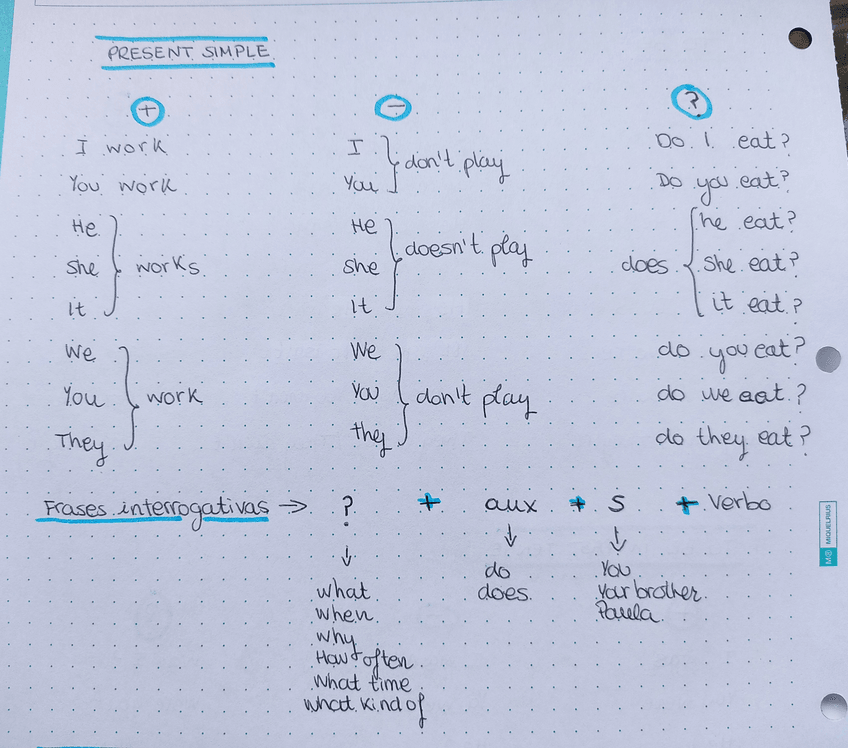 PRESENT SIMPLE
+ - ?
I work
You work
He
She
It
works
We
You
They
work
I
You
don't play
He
She
It
doesn't play
We
You
they
don't play
Do I eat?
Do you eat?
does
he eat?
she eat?
it eat?
do you eat?
do we eat?
do they eat?
Frases interrogativas → ? + aux + S + Verbo
↓ ↓ ↓
what
when
why
How often
What time
what kind of
do
does
You
Your brother
Paula
M MIQUELRIUS